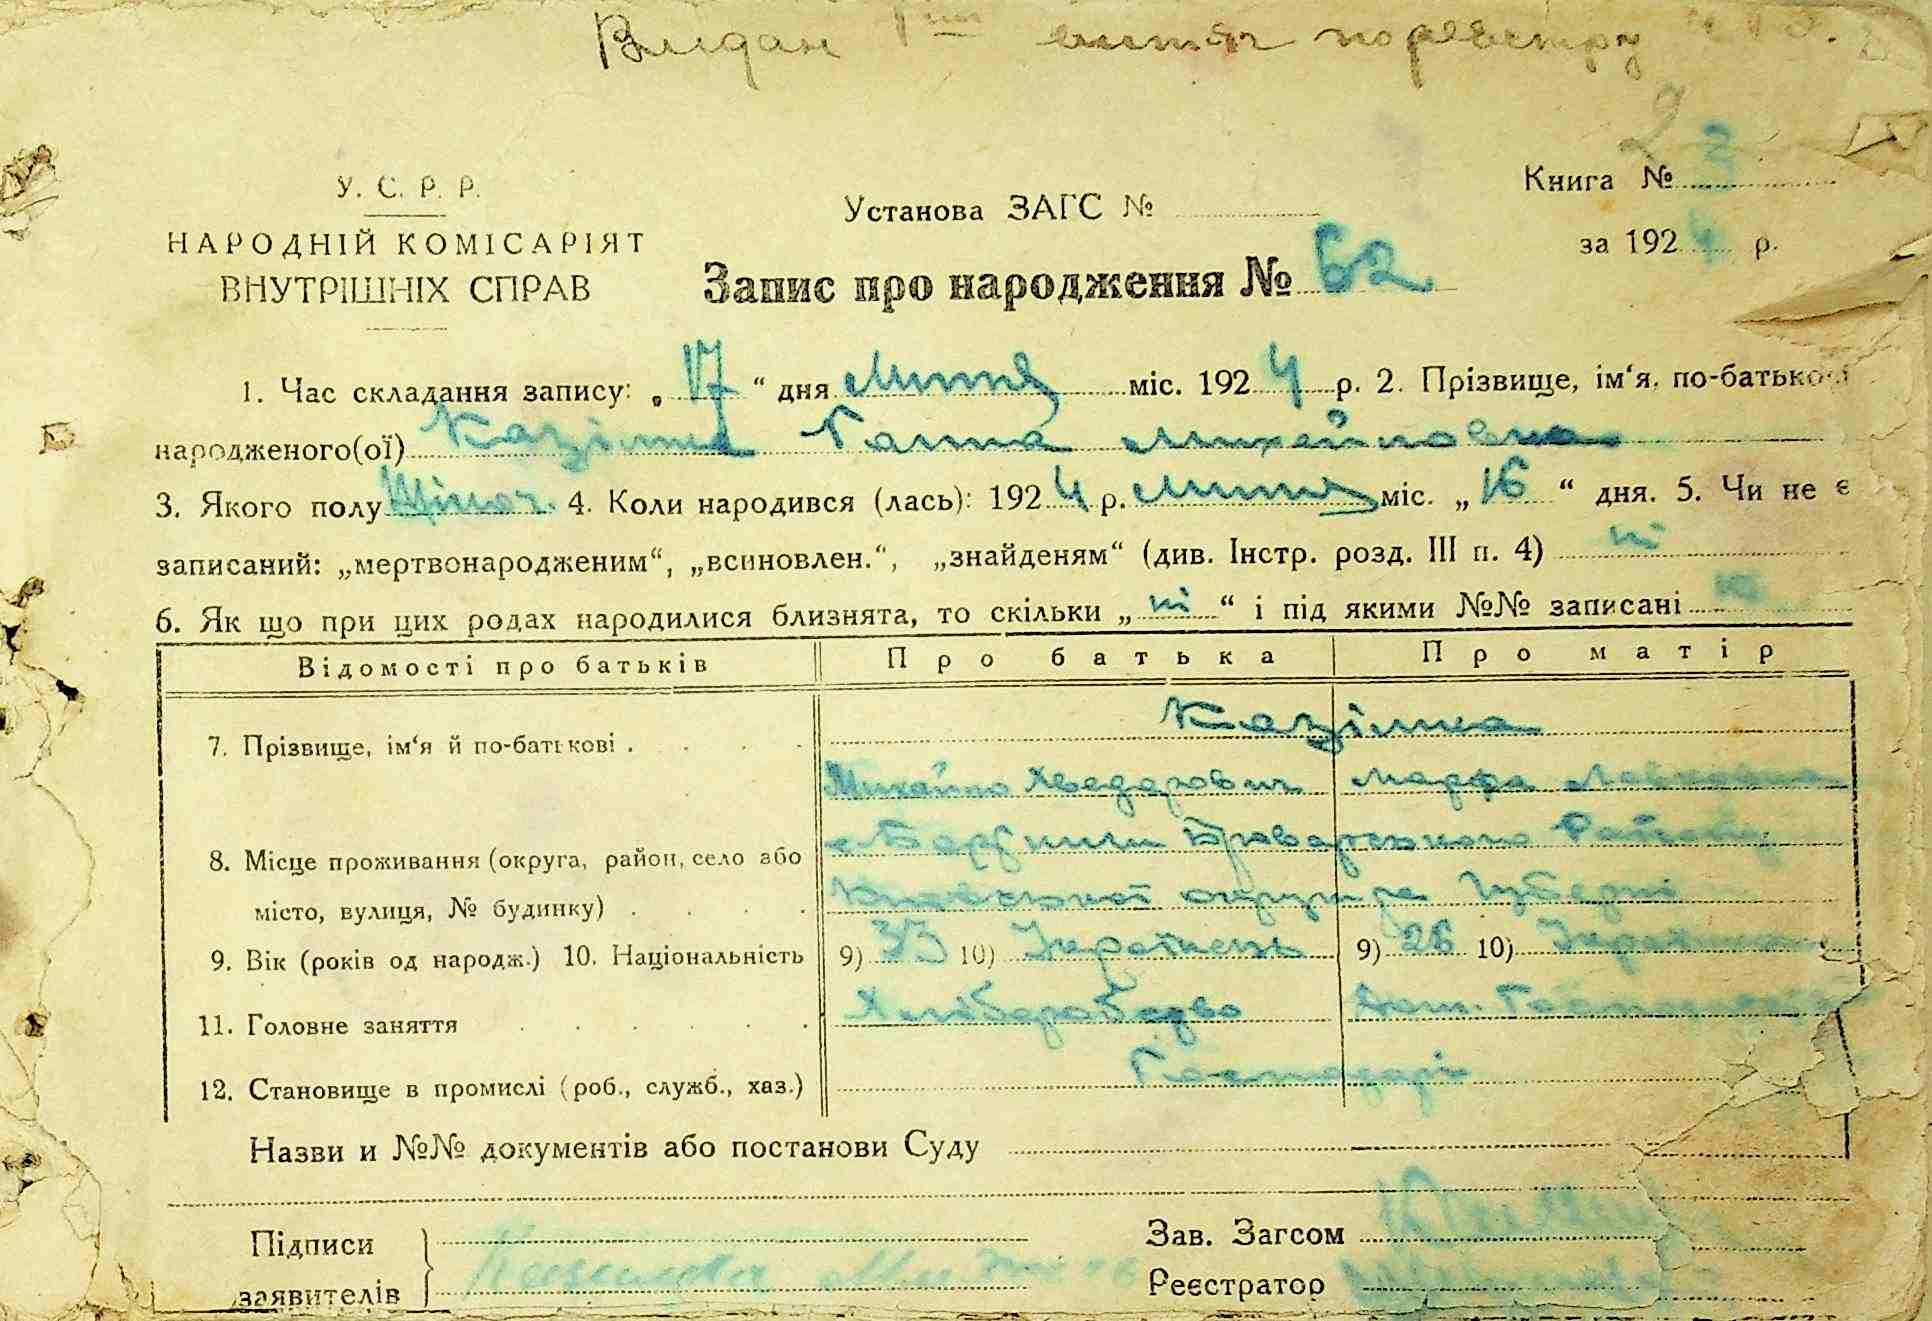 Видан витяг по реєстру
2
У. С. Р. Р.
НАРОДНІЙ КОМІСАРІЯТ
ВНУТРІШНІХ СПРАВ
Установа ЗАГС №
Книга № 3
за 1924 р.
Запис про народження № 62
1. Час складання запису: „17“ дня Липня міс. 1924 р. 2. Прізвище, ім‘я, по-батькові
народженого(ої) Казілка Ганна Михайловна
3. Якого полу Жіноч. 4. Коли народився (лась): 1924 р. Липня міс. „16“ дня. 5. Чи не є
записаний: „мертвонародженим“, „всиновлен.“, „знайденям“ (див. Інстр. розд. III п. 4) ні
6. Як що при цих родах народилися близнята, то скільки „ні“ і під якими №№ записані ні
Відомості про батьків Про батька Про матір
7. Прізвище, ім‘я й по-батькові Казілка
Михайло Хведорович Марфа
8. Місце проживання (округа, район, село або Броварського Району
місто, вулиця, № будинку) Київської округи Губерні
9. Вік (років од народж.) 10. Національність 9) 33 10) Українець 9) 26 10) Українка
11. Головне заняття Хліборобство Дом. Господарство
12. Становище в промислі (роб., служб., хаз.) Господарі
Назви и №№ документів або постанови Суду
Підписи
заявителів
Зав. Загсом
Реєстратор